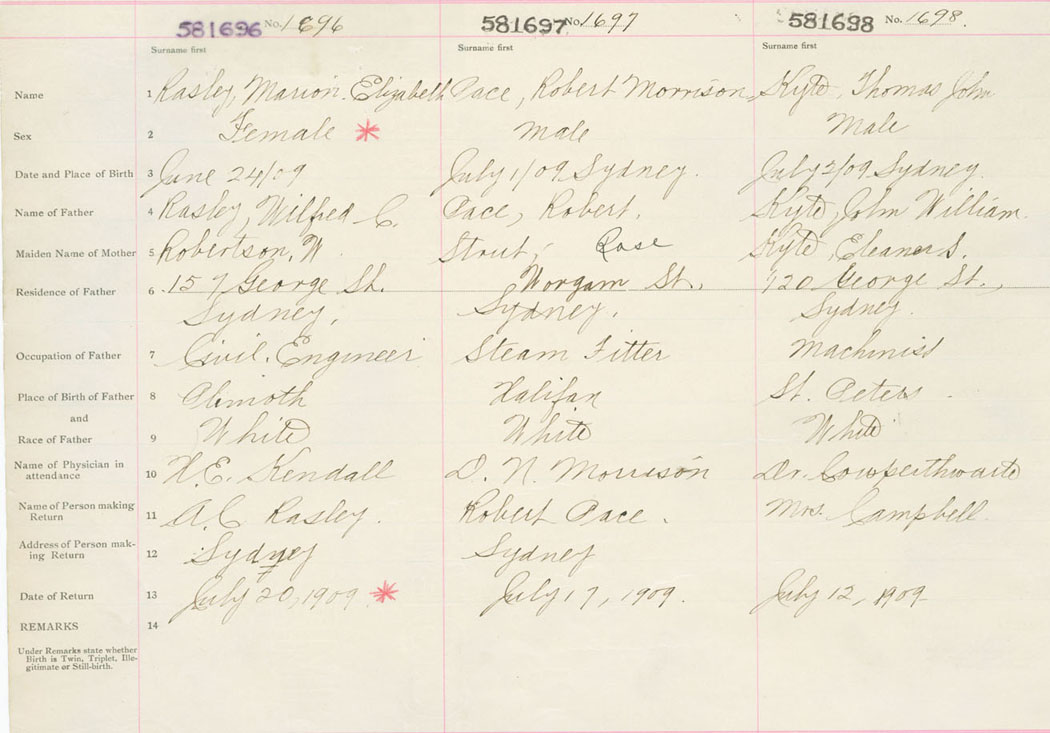 581696 No. 1696 581697 No. 1697 581698 No. 1698.
Surname first Surname first Surname first
Name 1 Rasley, Marion Elizabeth Pace, Robert Morrison Kyte, Thomas John
Sex 2 Female * Male Male
Date and Place of Birth 3 June 24/09 July 1/09 Sydney. July 2/09 Sydney.
Name of Father 4 Rasley, Wilfred C. Pace, Robert. Kyte, John William.
Maiden Name of Mother 5 Robertson, W. Stout, Rose Kyte, Eleanor S.
Residence of Father 6 157 George St. Worgam St., 120 George St.,
Sydney. Sydney. Sydney.
Occupation of Father 7 Civil Engineer Steam Fitter Machinist
Place of Birth of Father 8 Halifax St. Peters
and
Race of Father 9 White White White
Name of Physician in
attendance 10 H.E. Kendall D. N. Morrison Dr. Cowperthwaite
Name of Person making
Return 11 A.C. Rasley. Robert Pace. Mrs. Campbell.
Address of Person mak-
ing Return 12 Sydney Sydney
Date of Return 13 July 20, 1909 * July 17, 1909. July 12, 1909
REMARKS 14
Under Remarks state whether
Birth is Twin, Triplet, Ille-
gitimate or Still-birth.